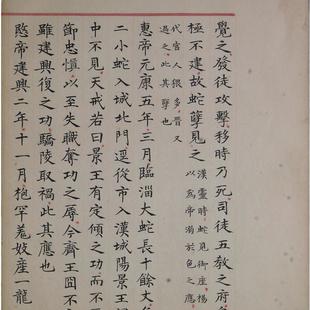 覺之發徒攻擊移時乃死司徒五教之府
極不建故蛇孽見之漢靈時蛇見御座楊
以為帝溺於色之應
代宮人很多晉又
過之此其孽也
惠帝元康五年三月臨淄大蛇長十餘丈
二小蛇入城北門逕從市入漢城陽景王
中不見天戒若曰景王有定傾之功而不
節忠慎以至失職奪功之辱今齊王冏不
雖建興復之功驕陵取禍此其應也
愍帝建興二年十一月枹罕羌妓產一龍